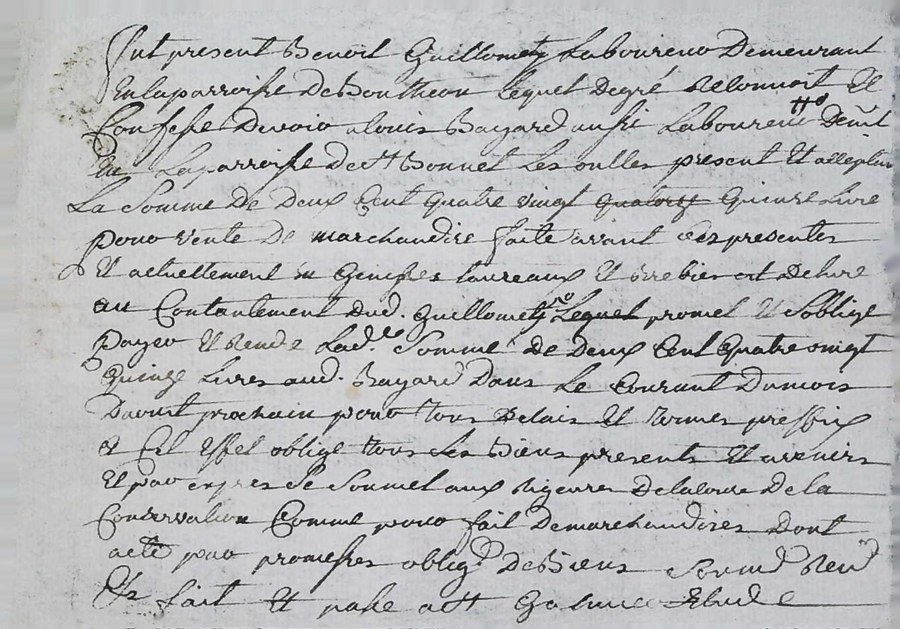 fut present Benoit Guillomety Laboureur Demeurant
En la parroisse De Bontheon lequel De gré Reconnoit Et
Confesse Devoir a louis Bayard aussi Laboureur
De La parroisse de St Bonnet Les oulles present Et acceptant
La Somme De Deux Cent quatre vingt quatorze quinze livre
pour vente De marchandise faite avant ces presentes
Et actuellement en Genisses taureaux Et brebier
au Contantement Dud. Guillomety Lequel promet Et S'oblige
Payer Et Rendre Lad.e Somme De Deux Cent quatre vingt
quinze Livres aud. Bayard Dans Le Courant Du mois
Daoust prochain pour tous Delais Et termes preffix
a Cet Effet oblige tous Ses Biens presents Et avenirs
Et par expres Se Soumet aux Rigeures De la Cour De la
Conservation Comme pour fait De marchandises Dont
acte par promesses oblig. De Biens Soumd Rend
Ets fait Et passe a St